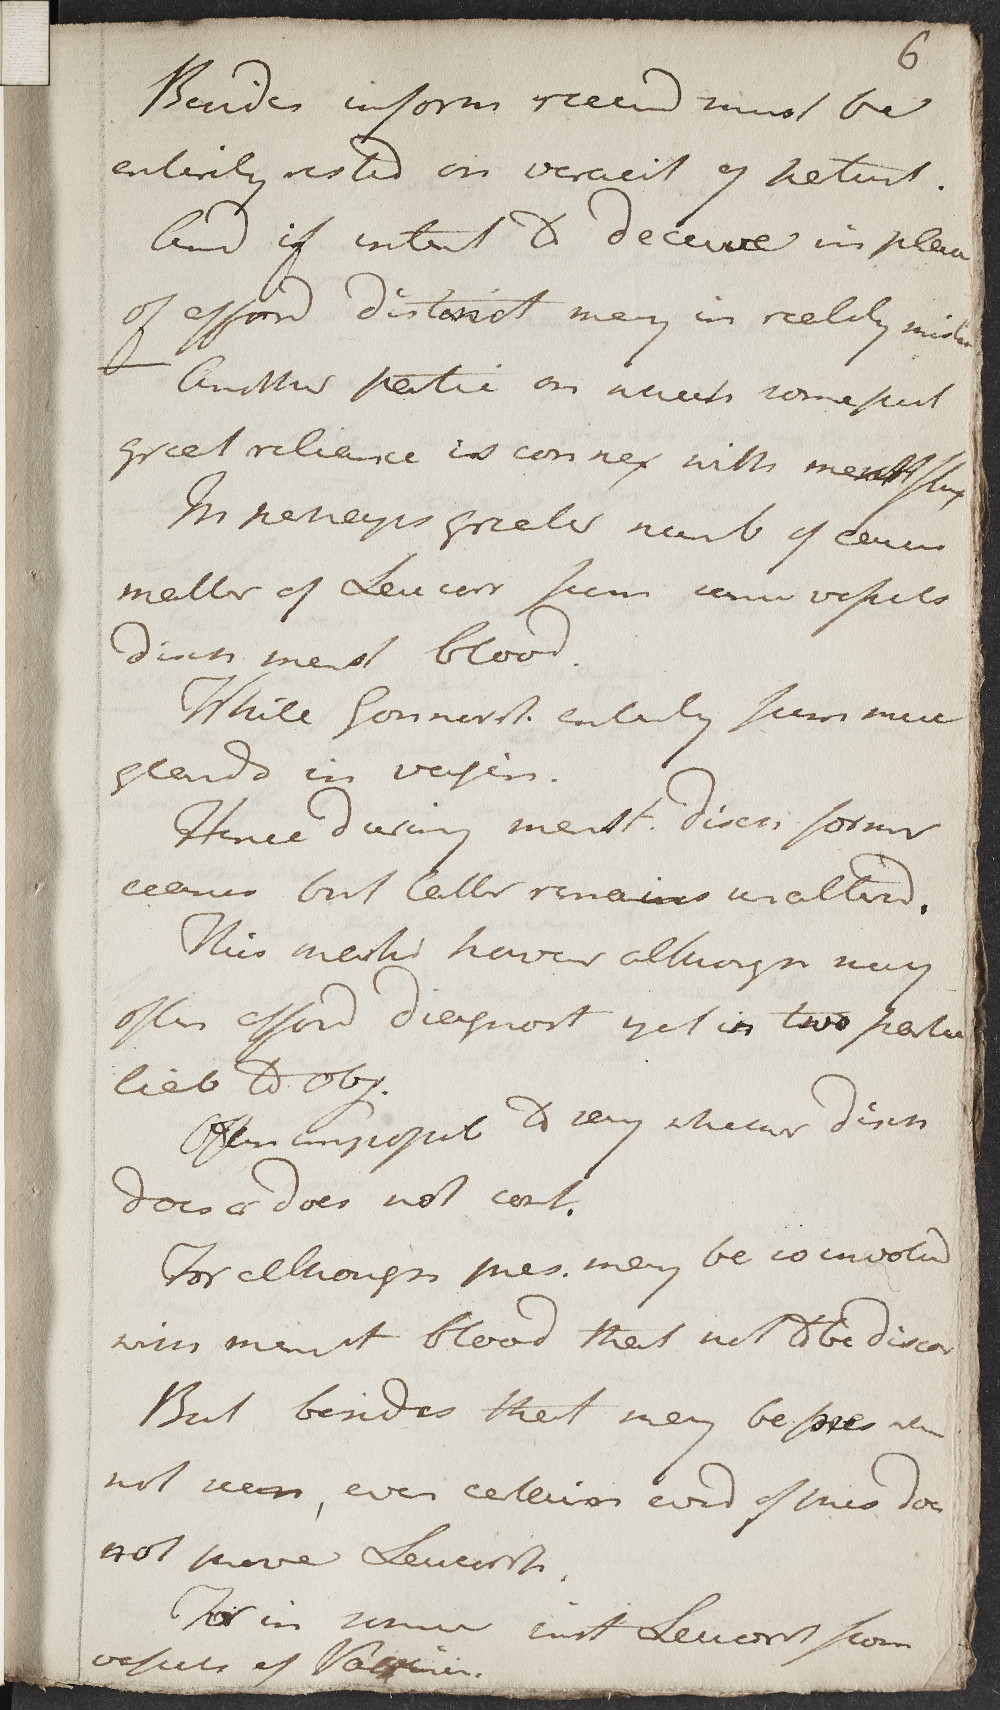 6
Besides inform receivd must be
entirely rested on veracit of patient.
And if intent to deceive in place
of afford distinct may in reality
Another partic on which some put
great reliance is connex with menst flux
In perhaps greater numb of cases
matter of Leucorr from same vessels
disch menst blood.
While Gonnorrh. entirely from muc
glands in vagin.
Hence during menst. disch former
ceases but latter remains unalterd.
This mark however although may
often afford diagnost yet in two partic
liab to obj.
Often impossib to say whether disch
does or does not cont.
For although pres. may be so involvd
with menst blood that not to be discov
But besides that may be pres when
not seen, even certain evid of pres does
not prove Leucorrh.
For in some inst Leucorrh from
vessels of Vagin.